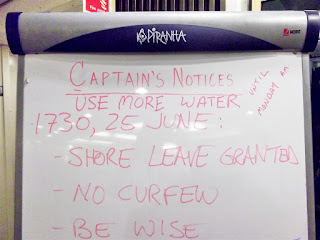 PIRANHA
CAPTAIN'S NOTICES
USE MORE WATER
UNTIL
MONDAY AM
1730, 25 JUNE:
- SHORE LEAVE GRANTED
- NO CURFEW
- BE WISE